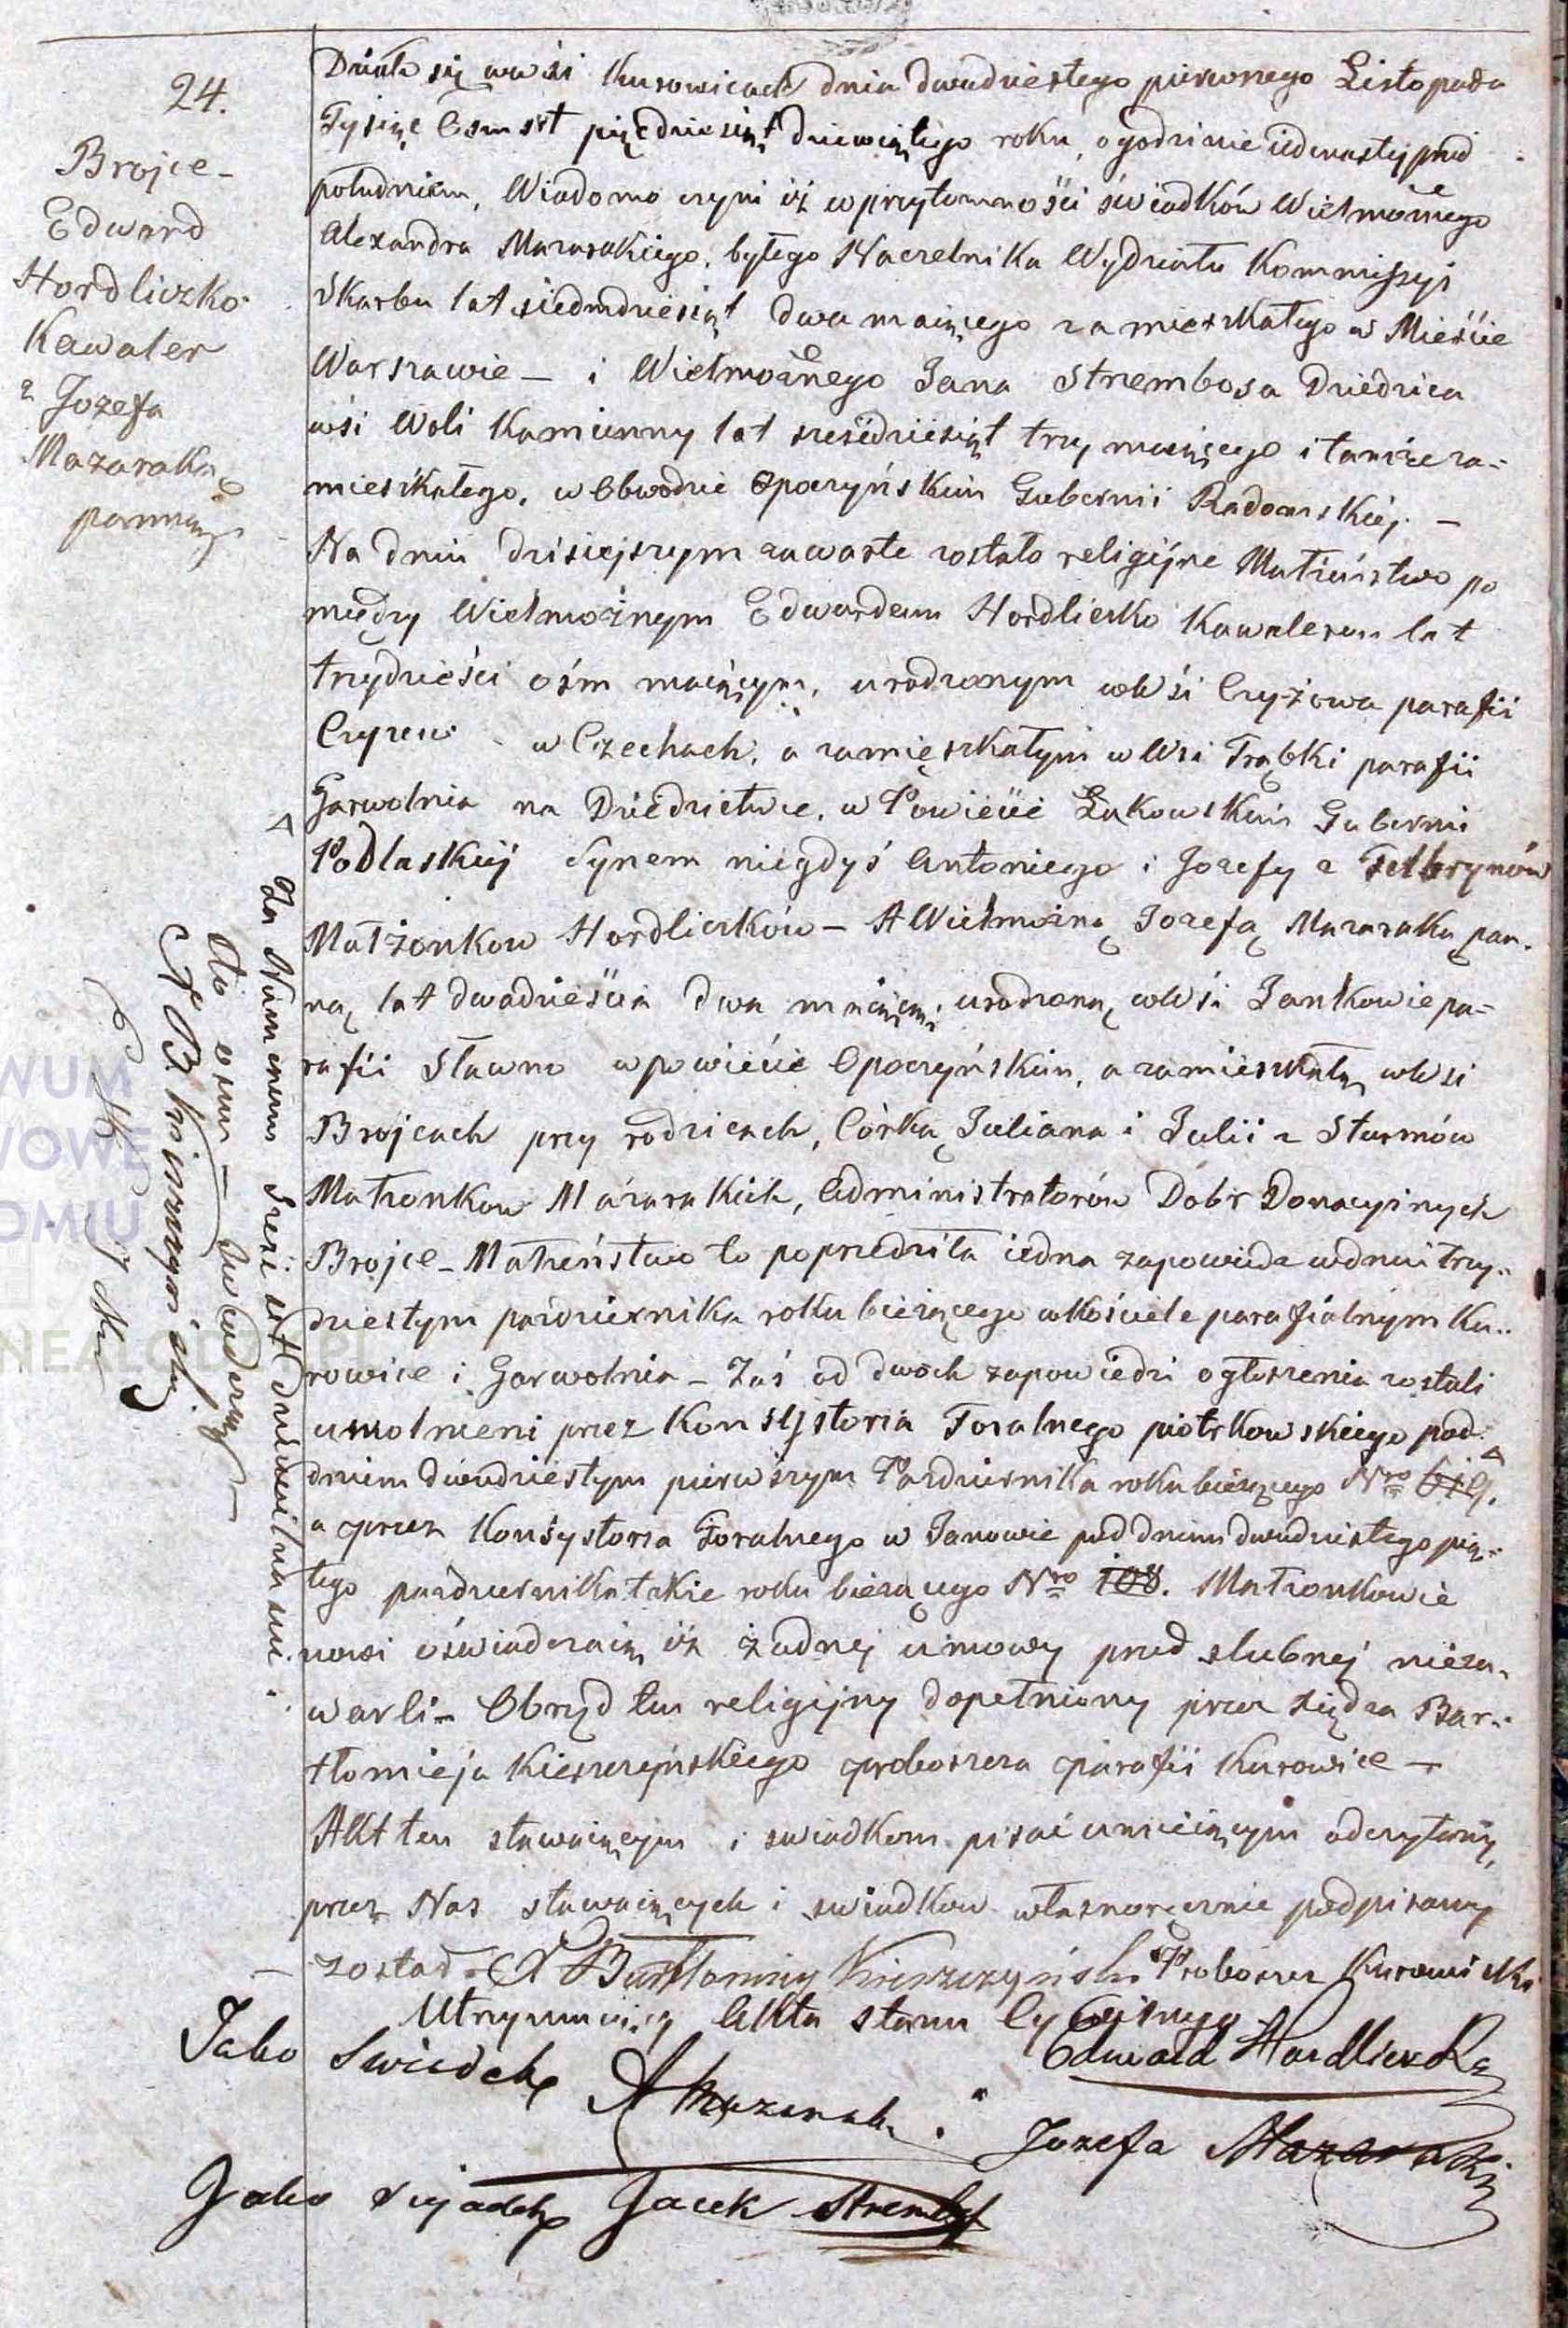 24.
Brojce –
Edward
Hordliczko
Kawaler
z Jozefa
Mazaraką
panną
Działo się we wsi Kurowicach dnia dwudziestego pierwszego Listopada
Tysiąc Osmset pięćdziesiąt dziewiątego roku, o godzinie iedenastej przed
południem, Wiadomo czyni iż w przytomności świadków Wielmożnego
Alexandra Mazarakiego, byłego Naczelnika Wydziału Kommissyi
Skarbu lat siedmdziesiąt dwa maiącego zamieszkałego w Mieście
Warszawie – i Wielmożnego Jana Strembosa Dziedzica
wsi Woli Kamienny lat sześćdziesiąt trzy maiącego i tamże za=
mieszkałego, w Obwodzie Opoczyńskim Gubernii Radomskiéj. –
Na dniu dzisiejszym zawarte zostało religijne Małżeństwo po
między Wielmożnym Edwardem Hordliczko Kawalerem lat
trzydzieści ośm maiącym, urodzonym w Wsi Czyżowa parafii
w Czechach, a zamięszkałym w Wsi Trąbki parafii
Garwolnia na Dziedzictwie, w Powiecie Łukowskim Gubernii
Podlaskiéj Synem niegdyś Antoniego i Jozefy z
Małżonkow Hordliczków – A Wielmożną Jozefą Mazaraką pan=
ną, lat dwadzieścia dwa maiącą, urodzoną w Wsi Jankowie pa=
rafii Sławno w powiecie Opoczyńskim, a zamieszkałą w Wsi
Brojcach przy rodzicach, Córką Juliana i Julii z Sturmów
Małżonkow Mazarakich, Administratorów Dóbr Donacyinych
Brojce – Małżeństwo to poprzedziła iedna zapowiedz w dniu trzy=
dziestym pazdziernika roku bieżącego w kościele parafialnym Ku=
rowice i Garwolnia – Zaś od dwóch zapowiedzi ogłoszenia zostali
uwolnieni przez Konsystorza Foralnego piotrkowskiego pod
dniem dwudziestym pierwszym Pazdziernika roku bieżącego Nro 619.
a przez Konsystorza Foralnego w Janowie pod dniem dwudziestego pią=
tego pazdziernika także roku bieżącego Nro 108. Małżonkowie
nowi oświadczaią iż żadnej umowy przed slubnej nieza=
warli – Obrzęd ten religijny dopełniony przez Xiędza Bar=
tłomieja Kieszczyńskiego proboszcza parafii Kurowice –
Akt ten stawaiącym i swiadkom pisać umieiącym odczytany,
przez Nas stawaiących i swiadkow własnoręcznie podpisany
został – X Bartłomiej Kieszczyński Proboszcz Kurowicki
Utrzymuiący Akta stanu Cywilnego
Edward Hordliczko
Jako Swiadek A Mazaraki
Jozefa Mazaraki
Jako swjadek Jacek Strembosz
Za Numerem Sześćset
X B Kieszczyński